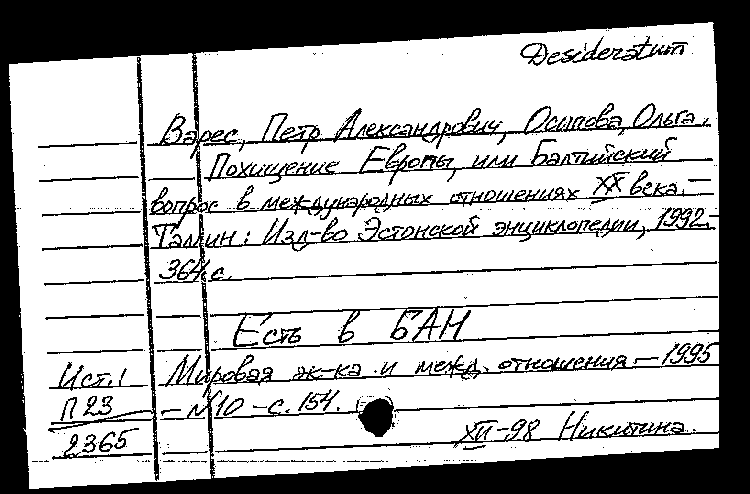 Desideratum
Варес, Петр Александрович, Осипова, Ольга.
Похищение Европы, или Балтийский
вопрос в международных отношениях XX века. —
Таллин: Изд-во Эстонской энциклопедии, 1992. —
364 с.
Есть в БАН
Ист.: Мировая эк-ка и межд. отношения — 1995
П 23 — №10 — с. 154.
2365 XII-98 Никитина.